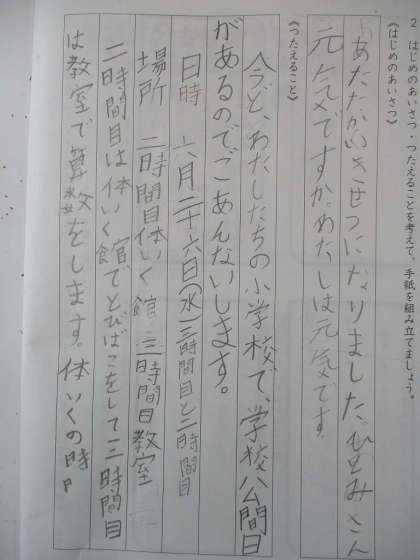 2 はじめのあいさつ・つたえることを考えて、手紙を組み立てましょう。
《はじめのあいさつ》
あたたかいきせつになりました。ひとみさん
元気ですか。わたしは元気です。
《つたえること》
今ど、わたしたちの小学校で、学校公間日
があるのでごあんないします。
日時 六月二十六日(水)二時間目と三時間目
場所 二時間目体いく館 三時間目教室
二時間目は体いく館でとびばこをして三時間目
は教室で算数をします。体いくの時